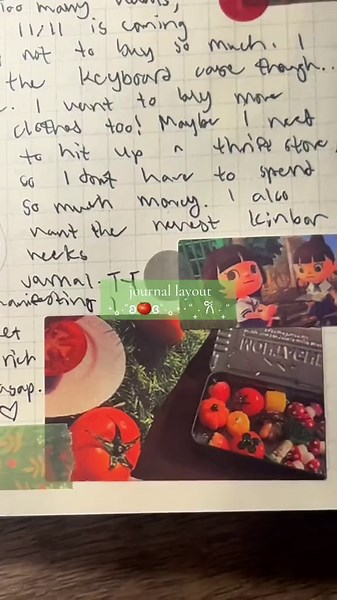 too many things,
11/11 is coming
not to buy so much. I
the keyboard case though..
I want to buy more
clothes too! Maybe I need
to hit up a thrift store
so I don't have to spend
so much money. I also
want the newest kinbor
weeks
journal. T-T
manifesting I
get
rich
asap.
♡
journal layout